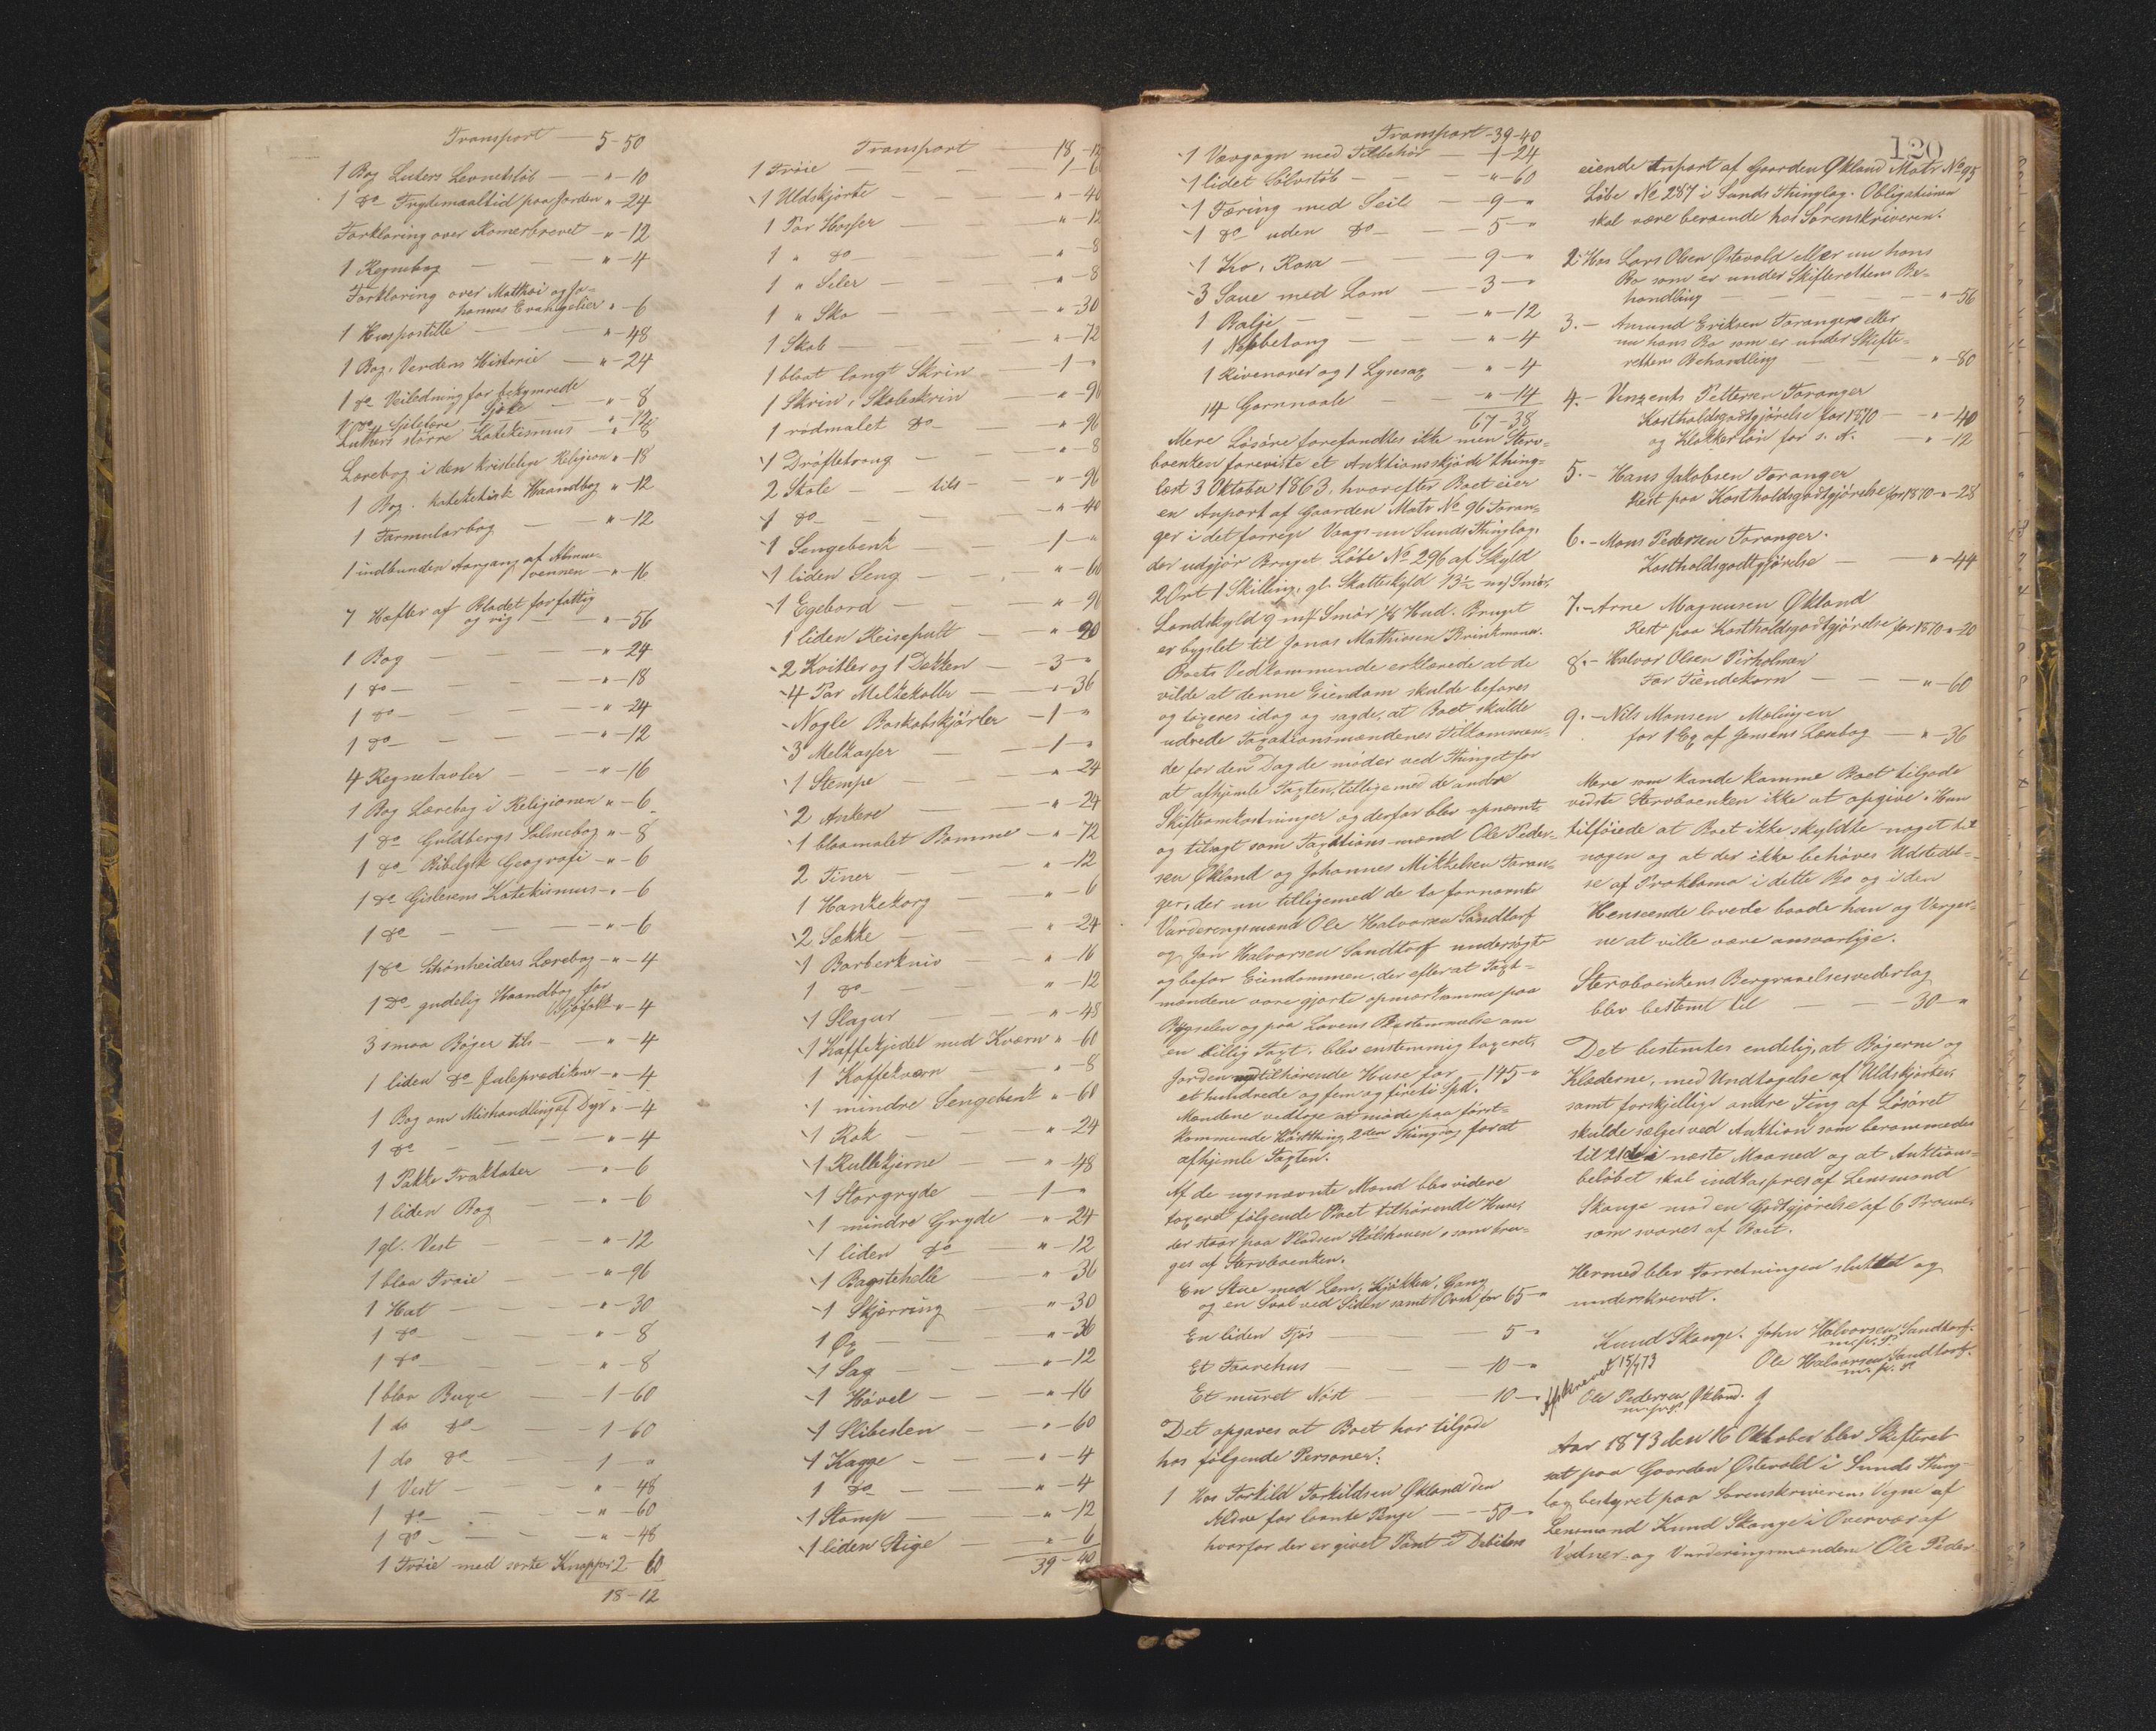 Transport — 5-50
1 Bog Luters Levnetsløb — " - 10
1 do Frydemaaltid paa Jorden " - 24
Forklaring over Romerbrevet — " - 12
1 Regnebog — " - 4
Forklaring over Matthæi og Jo-
hannes Evangelier " - 6
1 Huspostille — " - 48
1 Bog, Verdens Historie — " - 24
1 do Veiledning for bekymrede
Sjæle — " - 8
1 do — " - 12
Luthers større Katekismus — " - 8
Lærebog i den kristelige Religion " - 18
1 Bog. katekitisk Haandbog " - 12
1 Formularbog — " - 12
1 indbunden Aargang af Almue-
vennen — " - 16
7 Hefter af Bladet for fattig
og rig — " - 56
1 Bog — " - 24
1 do — " - 18
1 do — " - 24
1 do — " - 12
4 Regnetavler — " - 16
1 Bog Lærebog i Religionen " - 6
1 do Guldbergs Salmebog " - 8
1 do Bibelysk Geografi — " - 6
1 do Gislesens Katekismus — " - 6
1 do — " - 6
1 do Schønheiders Lærebog — " - 4
1 do gudelig Haandbog for
Sjøfolk — " - 4
3 smaa Bøger tils — " - 4
1 liden do Juleprædikener — " - 4
1 Bog om Mishandling af Dyr " - 4
1 do — " - 4
1 Pakke Traktater — " - 6
1 liden Bog — " - 6
1 gl. Vest — " - 12
1 blaa Trøie — " - 96
1 Hat — " - 30
1 do — " - 8
1 do — " - 8
1 blaa Buxe — 1 - 60
1 do do — 1 - 60
1 do do — 1 - "
1 Vest — " - 48
1 do — " - 60
1 do — " - 48
1 Trøie med sorte Knapper 2 - 60
18 - 12
Transport — 18 - 12
1 Trøie — 1 -
1 Uldskjorte — " - 40
1 Par Hoser — " - 12
1 " do — " - 8
1 " Seler — " - 8
1 " Sko — " - 30
1 Skab — " - 72
1 blaat langt Skrin — 1 - "
1 Skrin, Skoleskrin — " - 90
1 rødmalet do — " - 96
1 Drøftetroug — " - 8
2 Stole — tils — " - 96
1 do — " - 40
1 Sengebenk — 1 - "
1 liden Seng — " - 60
1 Egebord — " - 90
1 liden Reisepult — " - 90
2 Kvitler og 1 Dekken — 3 - "
4 Par Melkekoller — " - 36
Nogle Boskabskjørler — 1 - "
3 Melkasser — 1 - "
1 Stempe — " - 24
2 Ankere — " - 24
1 blaamalet Bomme — " - 72
2 Tiner — " - 12
1 Hankekorg — " - 6
2 Sække — " - 24
1 Barberkniv — " - 16
1 do — " - 12
1 Slagur — " - 48
1 Kaffekjedel med Kværn " - 60
1 Kaffekværn — " - 8
1 mindre Sengebenk " - 60
1 Rok — " - 24
1 Rullekjerne — " - 48
1 Storgryde — 1 - "
1 mindre Gryde — " - 24
1 liden do — " - 12
1 Bagstehelle — " - 36
1 Skjerring — " - 30
1 Øx — " - 36
1 Sag — " - 12
1 Høvel — " - 16
1 Slibesten — " - 60
1 Kagge — " - 4
1 do — " - 4
1 Stamp — " - 12
1 liden Stige — " - 6
39 - 40
Transport - 39 - 40
1 Vævgogn med Tilbehør — 1 - 24
1 lidet Sølvstøb — " - 60
1 Færing med Seil — 9 - "
1 do uden do — 5 - "
1 Ko, Rosa — 9 - "
3 Saue med Lam — 3 - "
1 Balje — " - 12
1 Nebbetang — " - 4
1 Rivenaver og 1 Lysesax — " - 4
14 Garnnaale — " - 14
67 - 38
Mere Løsøre forefandtes ikke men Sterv-
boenken foreviste et Auktionsskjøde thing-
læst 3 Oktober 1863, hvorefter Boet eier
en Anpart af Gaarden Matr No 96 Foran-
ger i det forrige Vaags nu Sunds Thinglag,
der udgjør Bruget Løbe No 296 af Skyld
2 Ort 1 Skilling, gl. Skatteskyld 13½ mf Smør,
Landskyld 9 mf Smør ⅛ Hud. Bruget
er bygslet til Jonas Mathisen Brinkmann.
Boets Vedkommende erklærede at de
vilde at denne Eiendom skulde befares
og taxeres idag og sagde, at Boet skulde
udrede Taxationsmændenes Tilkommen-
de for den Dag de møder ved Thinget for
at afhjemle Taxten, tilligemed de andre
Skifteomkostninger og derfor blev opnævnt
og tilsagt som Taxtionsmænd Ole Peder-
sen Økland og Johannes Mikkelsen Foran-
ger, der nu tilligemed de to fornævnte
Vurderingsmænd Ole Halvorsen Sandtorf
og Jon Halvorsen Sandtorf undersøgte
og befor Eiendommen, der efter at Taxt-
mændene vare gjorte opmærksomme paa
Bygselen og paa Lovens Bestemmelse om
en billig Taxt, blev enstemmig taxeret,
Jorden med tilhørende Huse for — 145 - "
et hundrede og fem og firti Spd.
Mændene vedtoge at møde paa først-
kommende Høstthing 2den Thingdag for at
afhjemle Taxten.
Af de nysnævnte Mænd blev videre
taxeret følgende Boet tilhørende Huse,
der staar paa Pladsen Stølshauen, som bru-
ges af Stervboenken.
En Stue med Lem, Kjøkken, Gang
og en Sval ved Siden samt Ovn for 65 - "
En liden Fjøs — 5 - "
Et Faarehus — 10 - "
Et muret Nøst — 10 - "
Det opgaves at Boet har tilgode
hos følgende Personer:
1 Hos Torkild Torkildsen Økland den
Ældre for laante Penge — 50 - "
hvorfor der er givet Pant i Debitors
120
eiende Anpart af Gaarden Økland Matr No 95
Løbe No 287 i Sunds Thinglag. Obligationen
skal være beroende hos Sorenskriveren.
2 Hos Lars Olsen Østevold eller nu hans
Bo som er under Skifterettens Be-
handling — " - 56
3. — Amund Eriksen Toranger eller
nu hans Bo som er under Skifte-
rettens Behandling — " - 80
4. — Vinzents Pettersen Toranger
Kostholdsgodtgjørelse for 1870 — " - 40
og Klokkerløn for s. A. — " - 12
5. — Hans Jakobsen Toranger
Rest paa Kostholdsgodtgjørelse for 1870 - " - 28
6. — Mons Pedersen Toranger.
Kostholdsgodtgjørelse — " - 44
7. — Arne Magnusen Økland
Rest paa Kostholdsgodtgjørelse for 1870 " - 20
8. — Halvor Olsen Pirholmen
For Tiendekorn — " - 60
9. — Nils Monsen Møvingen
for 1 Ex af Jensens Læsebog — " - 36
Mere som kunde komme Boet tilgode
vidste Stervboenken ikke at opgive. Hun
tilføiede at Boet ikke skyldte noget til
nogen og at der ikke behøves Udstedel-
se af Proklama i dette Bo og i den
Henseende lovede baade hun og Værger-
ne at ville være ansvarlige.
Stervboenkens Begravelsesvederlag
blev bestemt til — 30 - "
Det bestemtes endelig, at Bøgerne og
Klæderne, med Undtagelse af Uldskjorten,
samt forskjellige andre Ting af Løsøret
skulde sælges ved Auktion som berammedes
til 21de i næste Maaned og at Auktions-
beløbet skal indkasseres af Lensmand
Skauge mod en Godtgjørelse af 6 Procent,
som svares af Boet.
Hermed blev Forretningen sluttet og
underskrevet.
Knud Skauge. John Halvorsen Sandtorf.
m. p. P.
15/7 73 Ole Halvorsen Sandtorf.
m. p. P.
Ole Pedersen Økland.
m. p. P.
Aar 1873 den 16 Oktober blev Skifteret
sat paa Gaarden Østevold i Sunds Thing-
lag bestyret paa Sorenskriverens Vegne af
Lensmand Knud Skauge i Overvær af
Vidner- og Vurderingsmændene Ole Peder-